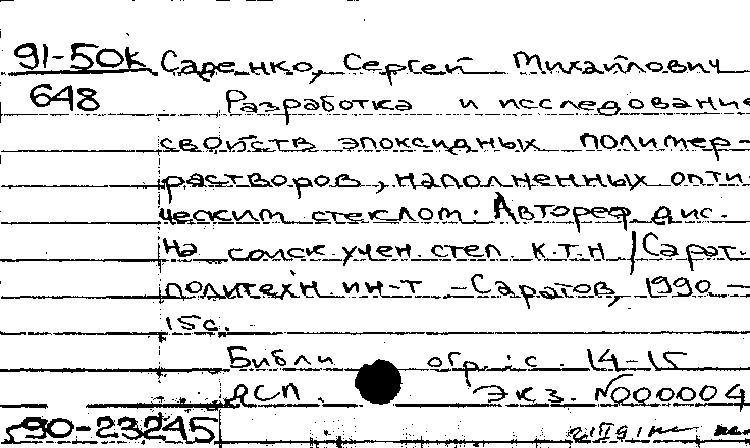 91-50к Саденко, Сергей Михайлович
648 Разработка и исследование
свойств эпоксидных полимер-
растворов, наполненных опти-
ческим стеклом. Автореф. дис.
на соиск. учен. степ. к.т.н / Сарат.
политехн. ин-т. - Саратов, 1990. -
15 с.
Библиогр.: с. 14-15
ДСП. Экз. №000004
90-23245